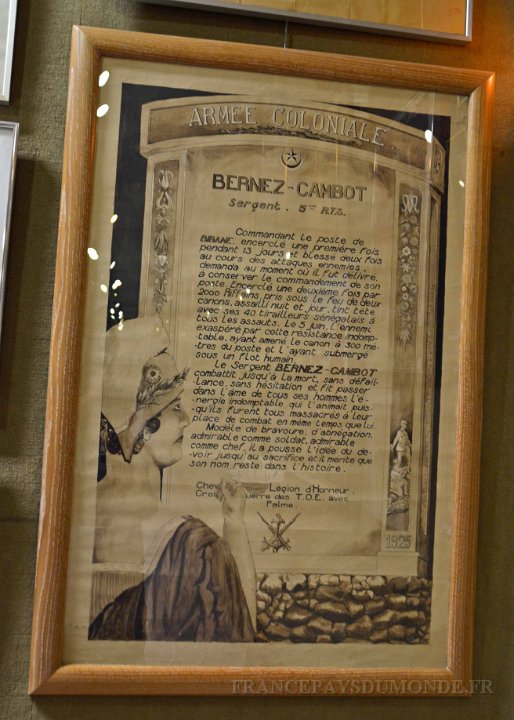 ARMÉE COLONIALE
BERNEZ-CAMBOT
Sergent. 5ème R.T.S.
Commandant le poste de
BIBANE, encerclé une première fois
pendant 13 jours et blessé deux fois
au cours des attaques ennemies,
demanda au moment où il fut délivré,
à conserver le commandement de son
poste. Encerclé une deuxième fois par
2000 Riffains, pris sous le feu de deux
canons, assailli nuit et jour, tint tête
avec ses 40 tirailleurs sénégalais à
tous les assauts. Le 5 juin, l'ennemi,
exaspéré par cette résistance indomp-
table, ayant amené le canon à 300 mè-
tres du poste et l'ayant submergé
sous un flot humain
Le Sergent BERNEZ-CAMBOT
combattit jusqu'à la mort, sans défail-
lance, sans hésitation et fit passer
dans l'âme de tous ses hommes l'é-
nergie indomptable qui l'animait puis-
qu'ils furent tous massacrés à leur
place de combat en même temps que lui.
Modèle de bravoure, d'abnégation,
admirable comme soldat, admirable
comme chef, il a poussé l'idée du de-
voir jusqu'au sacrifice et il mérite que
son nom reste dans l'histoire.
Légion d'Honneur.
Guerre des T.O.E. avec
Palme.
1925
FRANCEPAYSDUMONDE.FR